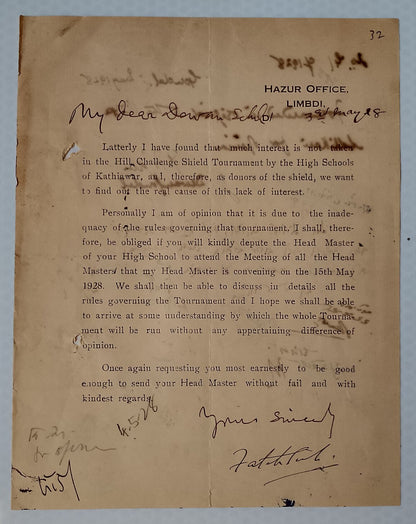 32
HAZUR OFFICE,
LIMBDI,
3rd May 28
My dear Dewan Sahib
Latterly I have found that much interest is not taken
in the Hill Challenge Shield Tournament by the High Schools
of Kathiawar, and, therefore, as donors of the shield, we want
to find out the real cause of this lack of interest.
Personally I am of opinion that it is due to the inade-
quacy of the rules governing that tournament. I shall, there-
fore, be obliged if you will kindly depute the Head Master
of your High School to attend the Meeting of all the Head
Masters that my Head Master is convening on the 15th May
1928. We shall then be able to discuss in details all the
rules governing the Tournament and I hope we shall be able
to arrive at some understanding by which the whole Tourna-
ment will be run without any appertaining difference of
opinion.
Once again requesting you most earnestly to be good
enough to send your Head Master without fail and with
kindest regards,
Yours Sincerely